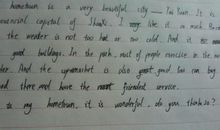 hometown is a very beautiful city — Tai'yuan. It is
capital of Shanxi. I very like it so much. Be
the weather is not too hot or too cold. And it
good buildings. In the park, most of people exercise in the mo
ter. And the supermarket is also great good. You can buy
od there and have the most friendest service.
is my hometown, it is wonderful, do you think so?